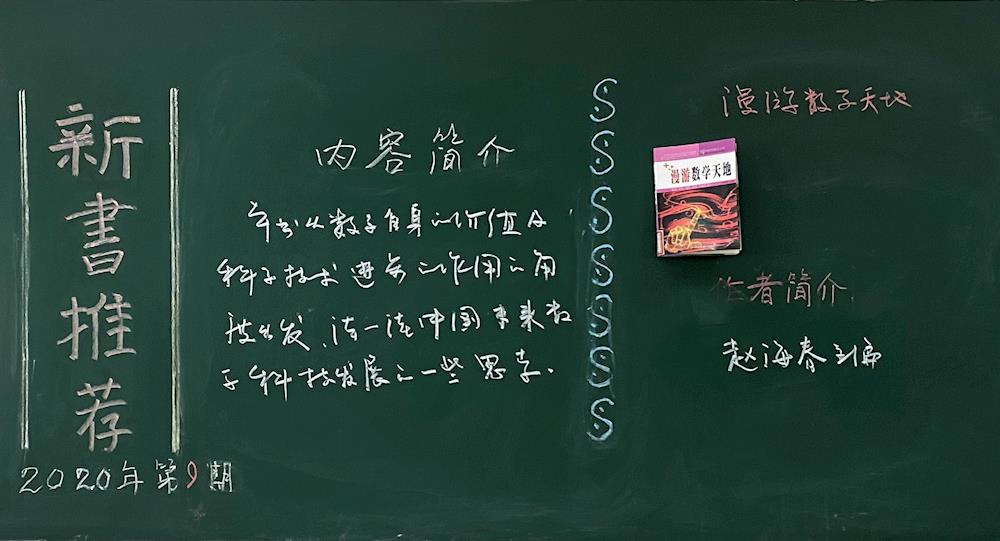 新書推荐
2020年第9期
内容简介
本书从数学自身的价值及
科学技术进步的作用的角
度出发,谈一谈中国未来数
学科技发展的一些思考.
漫游数学天地
漫游数学天地
作者简介
赵海春主编